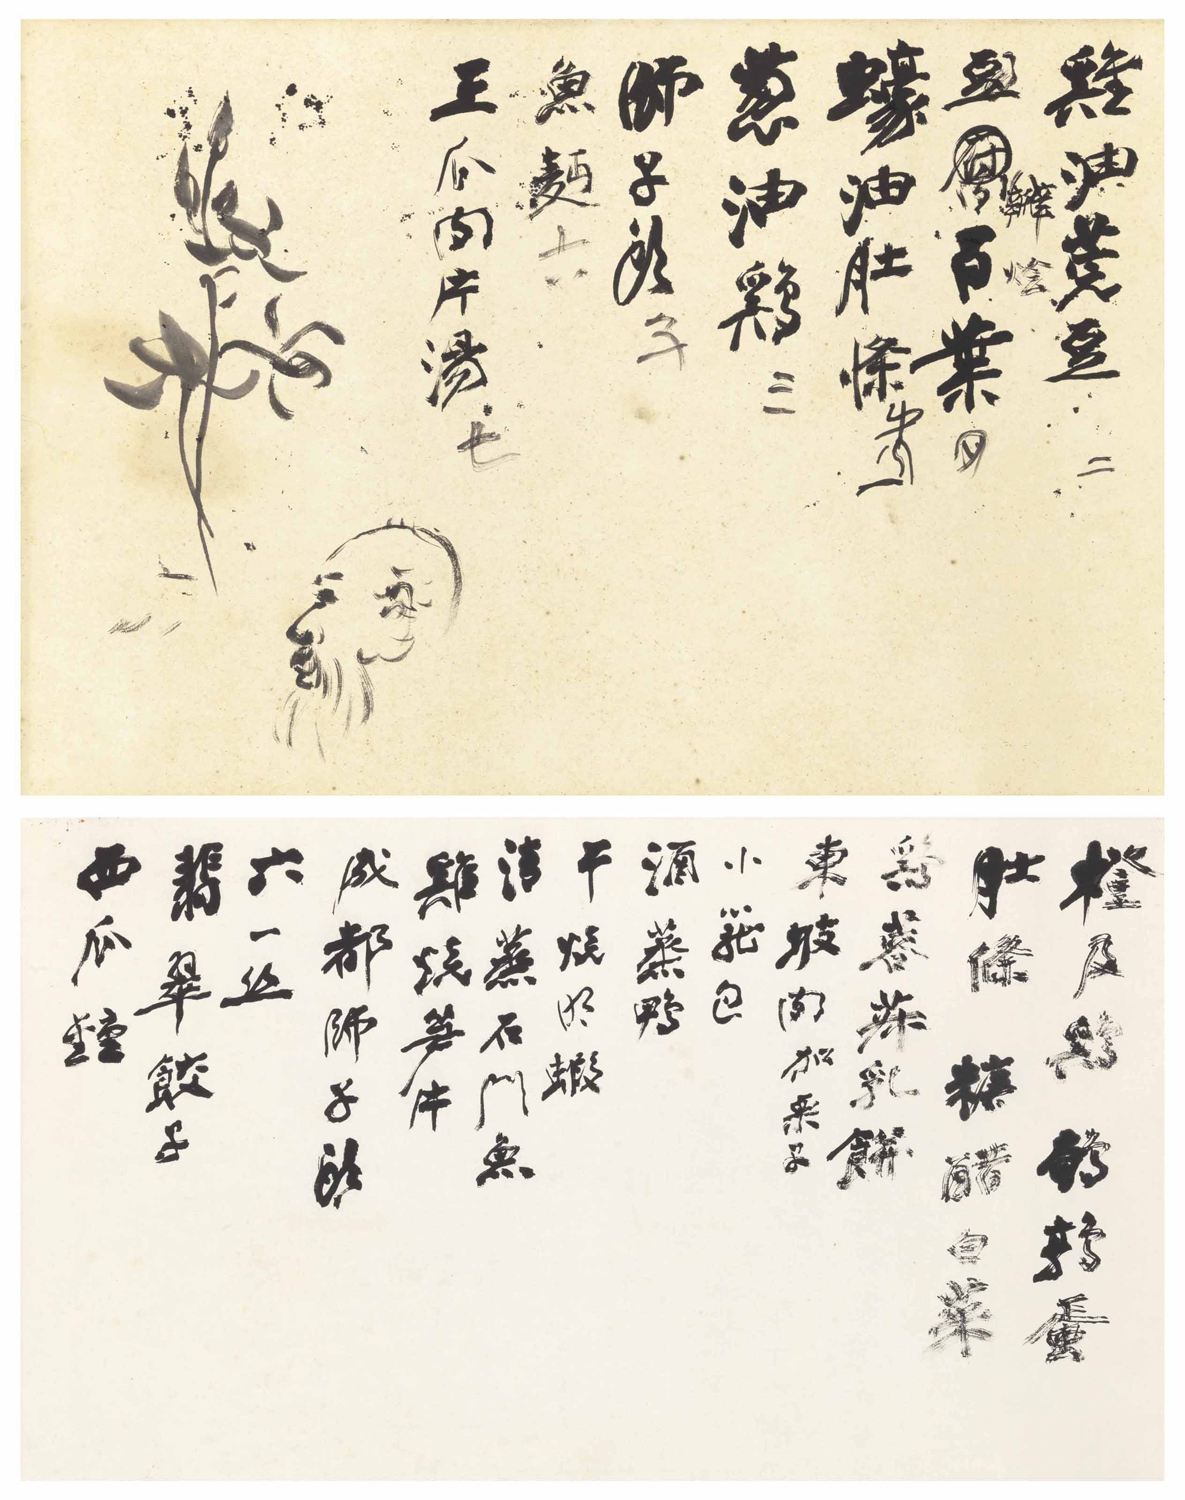 雞油菀豆 二
豆 百葉 四
辦 燴
蠔油肚條 壹
葱油鷄 三
師子頭 五
魚麵 六
王瓜肉片湯 七
橙皮鷄 鵪鶉蛋
肚條 糖醋白菜
蒸乳餅
東坡肉加栗子
小籠包
酒蒸鴨
干燒明蝦
清蒸石門魚
雞燒笋片
成都師子頭
六一丝
翡翠餃子
西瓜鐘